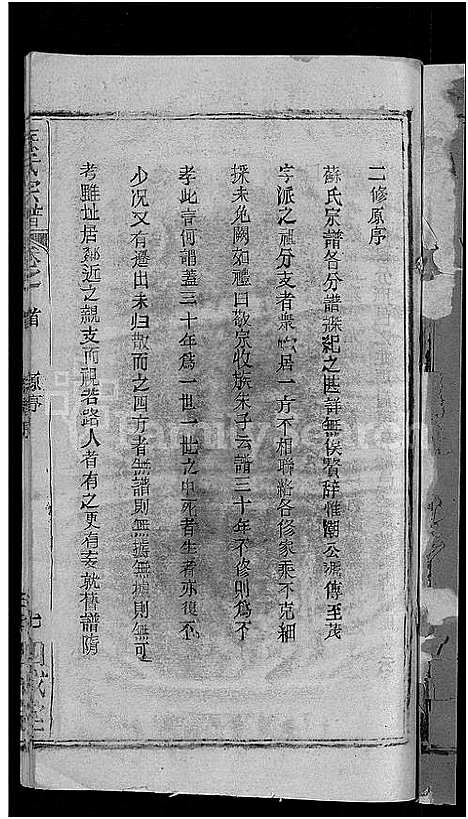 二修原序
蘇氏宗譜各分譜牒紀之甚詳無俟贅辞惟潮公遞傳至茂
字派之祖分支者衆散居一方不相聯絡各修家乘不克細
採未免闕如禮曰敬宗收族朱子云譜三十年不修則爲不
孝此言何謂蓋三十年爲一世一世之中死者生者亦復不
少况又有遷出未归散而之四方者無譜則無據無據則無可
考雖址居鄰近之親支而視若路人者有之更有妄就舊譜隋
氏宗譜
卷之 首 原序
FamilySearch